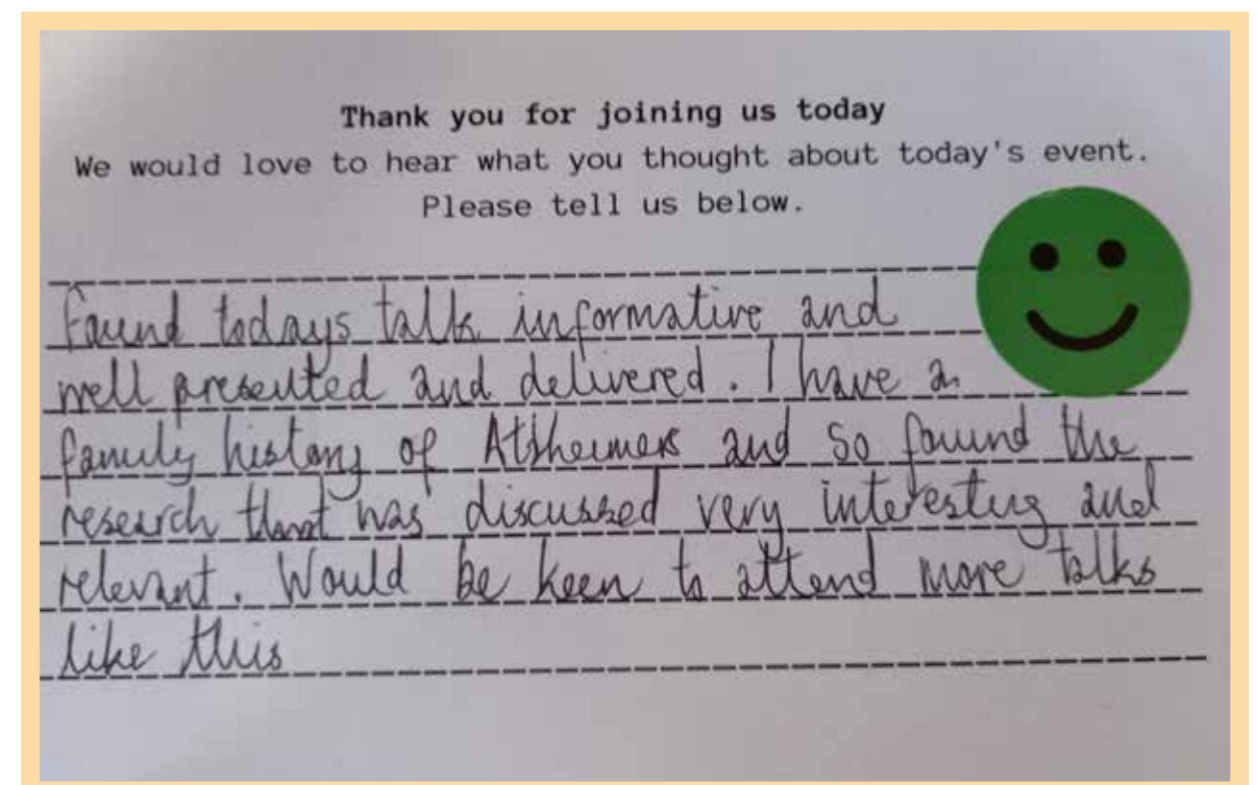 Thank you for joining us today
We would love to hear what you thought about today's event.
Please tell us below.
Found todays talk informative and
well presented and delivered. I have a
family history of Altheimers and so found the
research that was discussed very interesting and
relevant. Would be keen to attend more talks
like this